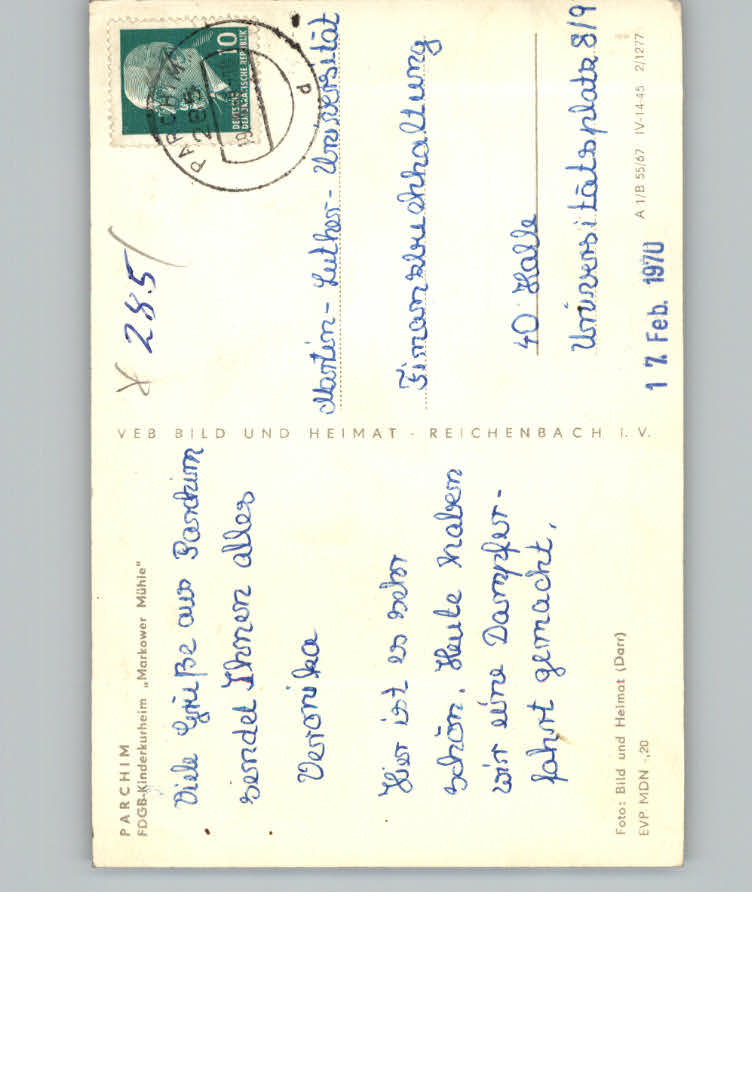 PARCHIM
FDGB-Kinderkurheim „Markower Mühle"
Viele Grüße aus Parchim
sendet Ihnen alles
Veronika
Hier ist es sehr
schön. Heute haben
wir eine Dampfer-
fahrt gemacht.
Foto: Bild und Heimat (Darr)
EVP MDN -,20
VEB BILD UND HEIMAT - REICHENBACH I. V.
28.5
PARCHIM
10
DEUTSCHE
DEMOKRATISCHE REPUBLIK
Martin-Luther-Universität
Finanzbuchhaltung
40 Halle
Universitätsplatz 8/9
A 1/B 55/67 IV-14-45 2/1277
17. Feb. 1970